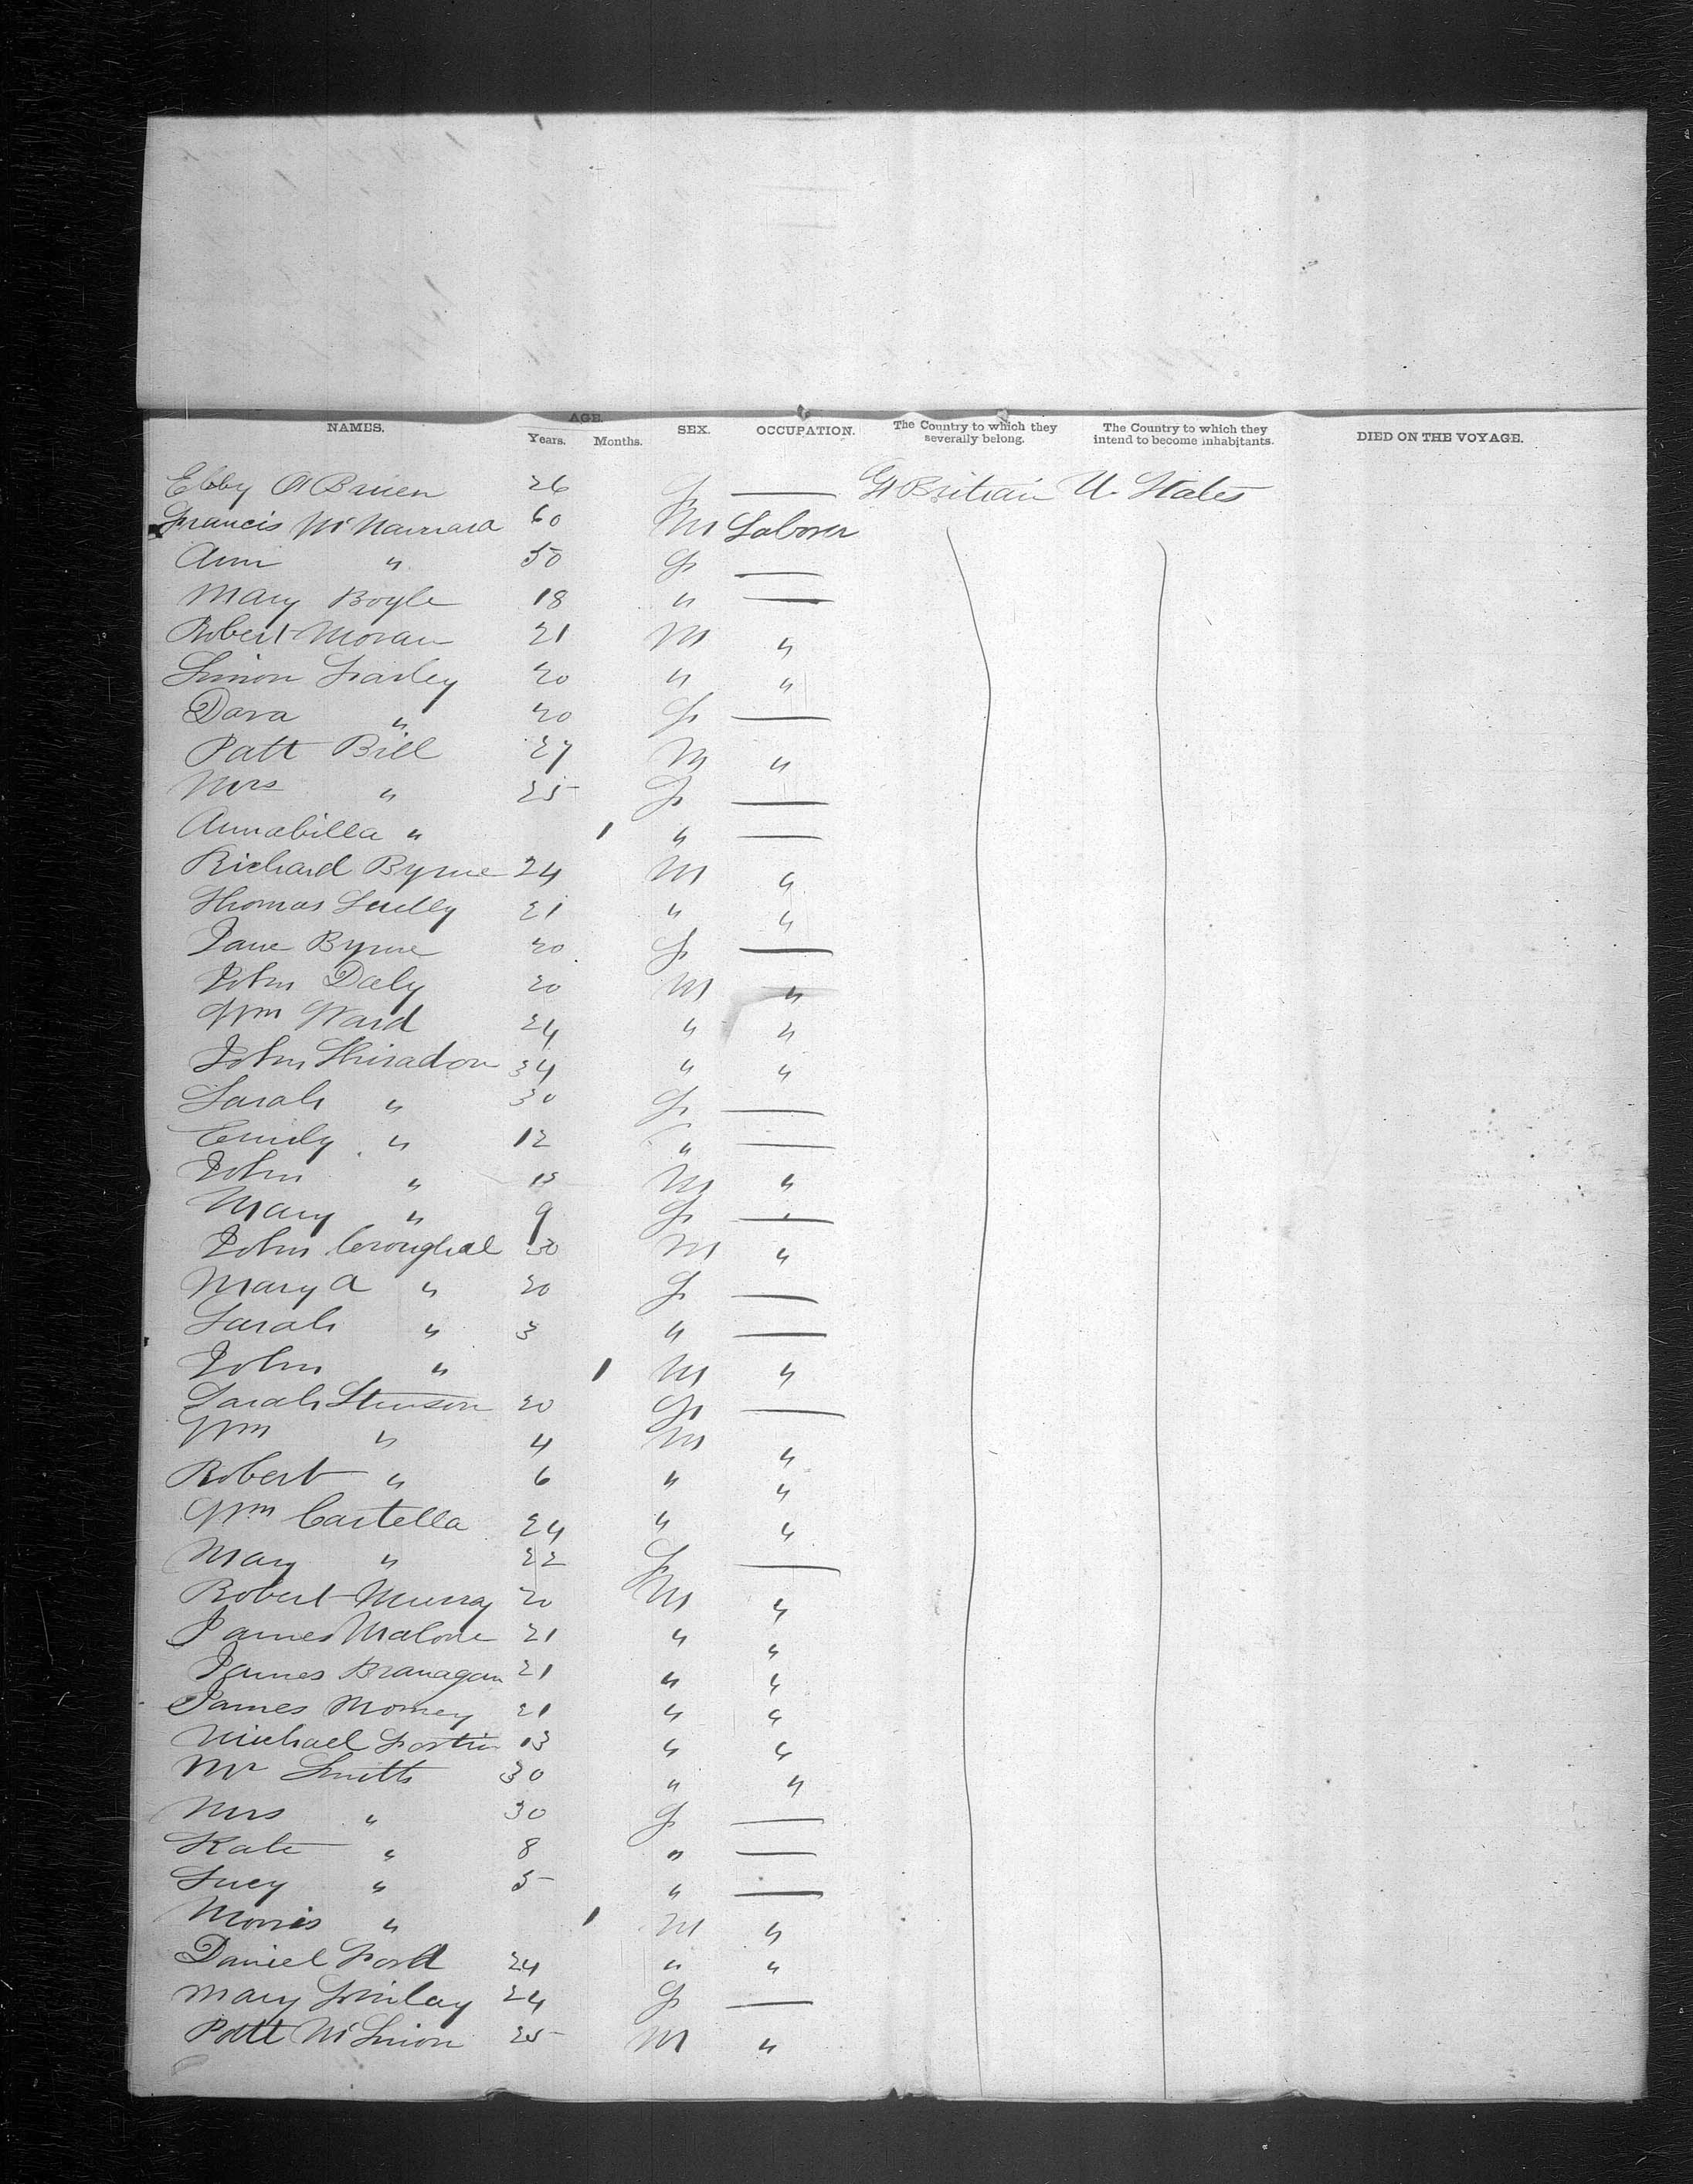 NAMES. AGE. Years. Months. SEX. OCCUPATION. The Country to which they severally belong. The Country to which they intend to become inhabitants. DIED ON THE VOYAGE.
Ebby O'Brien 26 F — Gt Britain U. States
Francis McNamara 60 M Laborer
Ann " 50 F —
Mary Boyle 18 " —
Robert Moran 21 M "
Simon Farley 20 " "
Dora " 20 F —
Patt Bill 27 M "
Mrs " 25 F —
Annabilla " 1 " —
Richard Byrne 24 M "
Thomas Scully 21 " "
Jane Byrne 20 F —
John Daly 20 M "
Wm Ward 24 " "
John Shiradon 34 " "
Sarah " 30 F —
Emily " 12 " —
John " M "
Mary " 9 F —
John Croughal 30 M "
Mary A " 20 F —
Sarah " 3 " —
John " 1 M "
Sarah Stinson 20 F —
Wm " 4 M "
Robert " 6 " "
Wm Castella 24 " "
Mary " 22 F —
Robert Murray 20 M "
James Malone 21 " "
James Branagan 21 " "
James Morney 21 " "
Michael 13 " "
Mr Smith 30 " "
Mrs " 30 F —
Kate " 8 " —
Lucy " 5 " —
Morris " 1 M "
Daniel Ford 24 " "
Mary Finlay 24 F —
Patt 25 M "